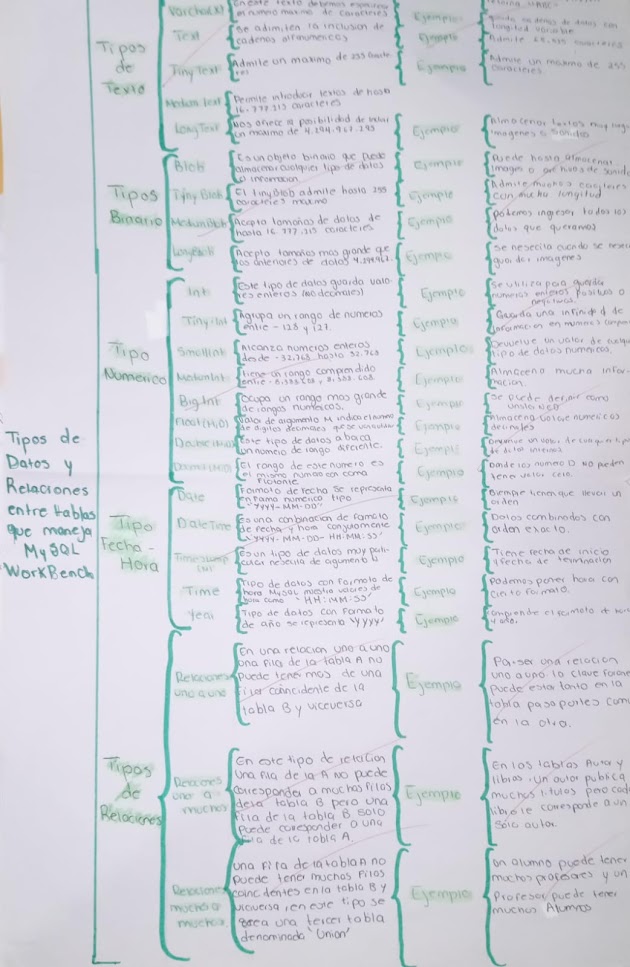 Tipos de
Datos y
Relaciones
entre tablas
que maneja
MySQL
WorkBench
Tipos
de
Texto
Varchar(x)
en numero maximo de caracteres
Ejemplo
longitud variable
Text
Se admiten la inclusion de
cadenas alfnumericos
Ejemplo
Admite caracteres
TinyText
Admite un maximo de 255
Ejemplo
Admite un maximo de 255
caracteres.
Medium Text
Permite introducir textos de hasta
16.777.215 caracteres
LongText
Nos ofrece la posibilidad de
un maximo de 4.294.967.295
Ejemplo
Almacenar textos muy
imagenes o sonidos
Tipos
Binario
Blob
Es un objeto binario que puede
almacenar cualquier tipo de datos
o informacion
Ejemplo
Puede hasta almacenar
images o archivos de sonido
Tiny Blob
El TinyBlob admite hasta 255
caracteres maximo
Ejemplo
Admite muchos
con mucha longitud
MediumBlob
Acepta tamaños de datos de
hasta 16.777.215 caracteres
Ejemplo
podemos ingresar todos los
datos que queramos
Acepto tamaños mas grande que
los anteriores de datos
Ejemplo
Se nesecita cuando se
guardar imagenes
Tipo
Numerico
Int
Este tipo de datos guarda valo
res enteros (no decimales)
Ejemplo
Se utiliza para guardar
numeros enteros positivos o
negativos.
Tiny-Int
Agrupa un rango de numeros
entre -128 y 127.
Ejemplo
Guarda una infinidad de
informacion en numeros
SmallInt
Alcanza numeros enteros
desde -32.768 hasta 32.768
Ejemplo
Devuelve un valor de
tipo de datos numericos.
MediumInt
Tiene un rango comprendido
entre
Ejemplo
Almacena mucha infor-
macion.
Big Int
Ocupa un rango mas grande
de rangos numericos.
Ejemplo
Se puede definir como
Float(M,D)
Valor de argumento M indica el numero
de digitos decimales que se
Ejemplo
Almacena valores numericos
decimales
Este tipo de datos abarca
un numero de rango diferente.
Ejemplo
El rango de este numero es
el mismo numero con coma
Flotante
Ejemplo
Donde los numero D no pueden
tener valor cero.
Tipo
Fecha-
Hora
Date
Formato de fecha se representa
en forma numerica tipo
"YYYY-MM-DD"
Ejemplo
Siempre tienen que llevar un
orden
DateTime
Es una conbinacion de formato
de fecha y hora conjuntamente
"YYYY-MM-DD-HH-MM-SS"
Ejemplo
Datos combinados con
orden exacto.
Es un tipo de datos muy
nesecita de argumento
Ejemplo
Tiene fecha de inicio
y fecha de terminacion
Time
Tipo de datos con formato de
hora MySQL muestra valores de
hora como "HH:MM:SS"
Ejemplo
Podemos poner hora con
cierto formato.
Year
Tipo de datos con formato
de año se representa "YYYY"
Ejemplo
Comprende el formato de
y año.
Tipos
de
Relaciones
Relaciones
uno a uno
En una relacion uno a uno
una fila de la tabla A no
puede tener mas de una
fila coincidente de la
tabla B y viceversa
Ejemplo
Por ser una relacion
uno a uno la clave
puede estar tanto en la
tabla pasaportes como
en la otra.
Relaciones
uno a
muchos
En este tipo de relacion
una fila de la A no puede
corresponder a muchas filas
de la tabla B pero una
fila de la tabla B solo
puede corresponder a una
fila de la tabla A.
Ejemplo
En las tablas Autor y
libros, un autor publica
muchos titulos pero cada
libro le corresponde a un
Solo autor.
Relaciones
mucho a
muchos
una fila de la tabla A no
puede tener muchas filas
coincidentes en la tabla B y
viceversa, en este tipo se
crea una tercer tabla
denominada 'Union'
Ejemplo
Un alumno puede tener
muchos profesores y un
Profesor puede tener
muchos Alumnos